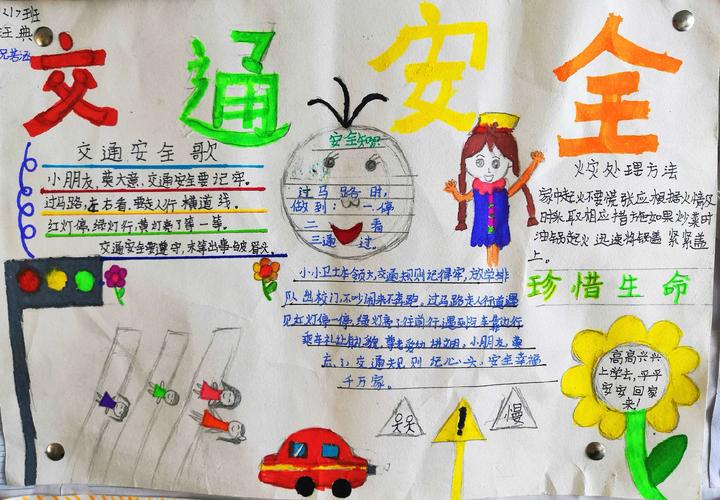 217班
交通安全
交通安全歌
小朋友,莫大意,交通安全要记牢.
过马路,左右看,要走人行横道线.
红灯停,绿灯行,黄灯亮了等一等.
交通安全要遵守,末等出事白了头.
安全知识
过马路时,
做到:一停
二看
三通过.
火灾处理方法
家中起火不要慌张应根据火情及
时采取相应措施如果炒菜时
油锅起火迅速将锅盖紧紧盖
上.
珍惜生命
小小卫士本领大,交通规则记得牢,放学排
队出校门,不吵闹来不奔跑.过马路走人行道遇
见红灯停一停,绿灯亮了往前行,遇到汽车靠边行
乘车礼让
小朋友,
忘了,交通规则记心头,安全幸福
千万家.
高高兴兴
上学去,平平
安安回家
来!
慢